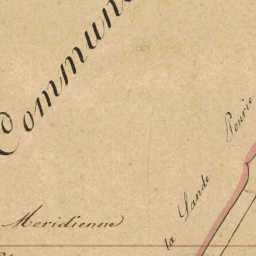 Commun
la Lande Pourie
Meridienne